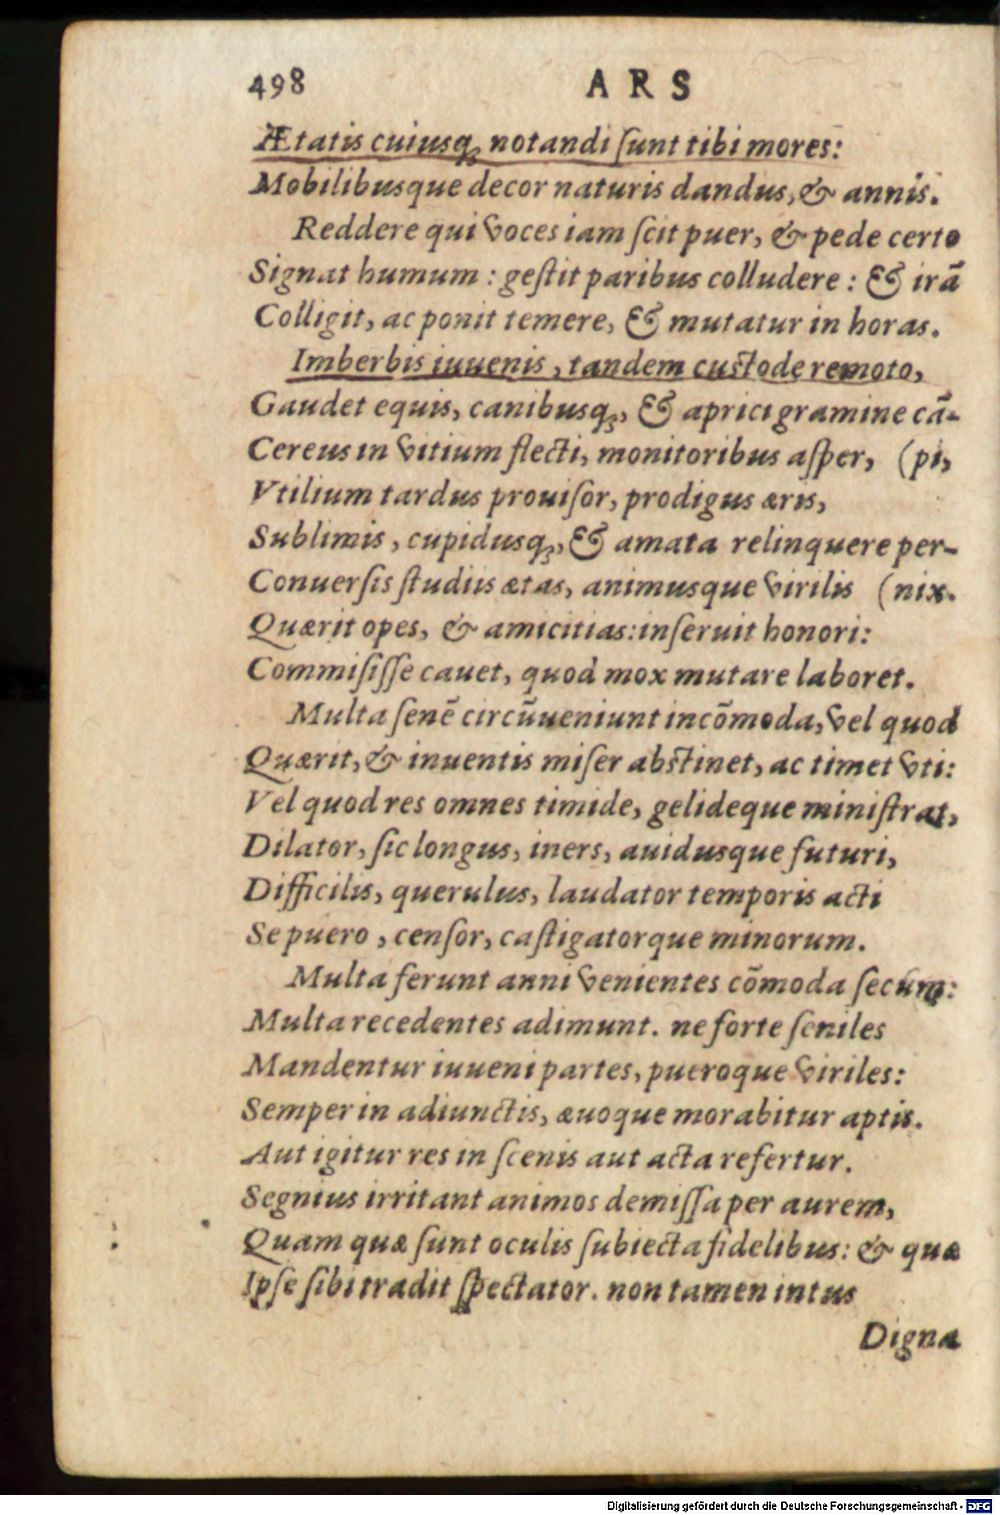 498 ARS
Ætatis cuiusq; notandi ſunt tibi mores:
Mobilibusque decor naturis dandus, & annis.
Reddere qui voces iam ſcit puer, & pede certo
Signat humum: geſtit paribus colludere: & irã
Colligit, ac ponit temere, & mutatur in horas.
Imberbis iuuenis, tandem cuſtode remoto,
Gaudet equis, canibusq;, & aprici gramine cã-
Cereus in vitium flecti, monitoribus aſper, (pi,
Vtilium tardus prouiſor, prodigus æris,
Sublimis, cupidusq;, & amata relinquere per-
Conuerſis ſtudiis ætas, animusque virilis (nix.
Quærit opes, & amicitias: inſeruit honori:
Commiſiſſe cauet, quod mox mutare laboret.
Multa ſenẽ circũueniunt incõmoda, vel quod
Quærit, & inuentis miſer abſtinet, ac timet vti:
Vel quod res omnes timide, gelideque miniſtrat,
Dilator, ſic longus, iners, auidusque futuri,
Difficilis, querulus, laudator temporis acti
Se puero, cenſor, caſtigatorque minorum.
Multa ferunt anni venientes cõmoda ſecum:
Multa recedentes adimunt. ne forte ſeniles
Mandentur iuueni partes, pueroque viriles:
Semper in adiunctis, æuoque morabitur aptis.
Aut igitur res in ſcenis aut acta refertur.
Segnius irritant animos demiſſa per aurem,
Quam quæ ſunt oculis ſubiecta fidelibus: & quæ
Ipſe ſibi tradit ſpectator. non tamen intus
Digna
Digitalisierung gefördert durch die Deutsche Forschungsgemeinschaft - DFG